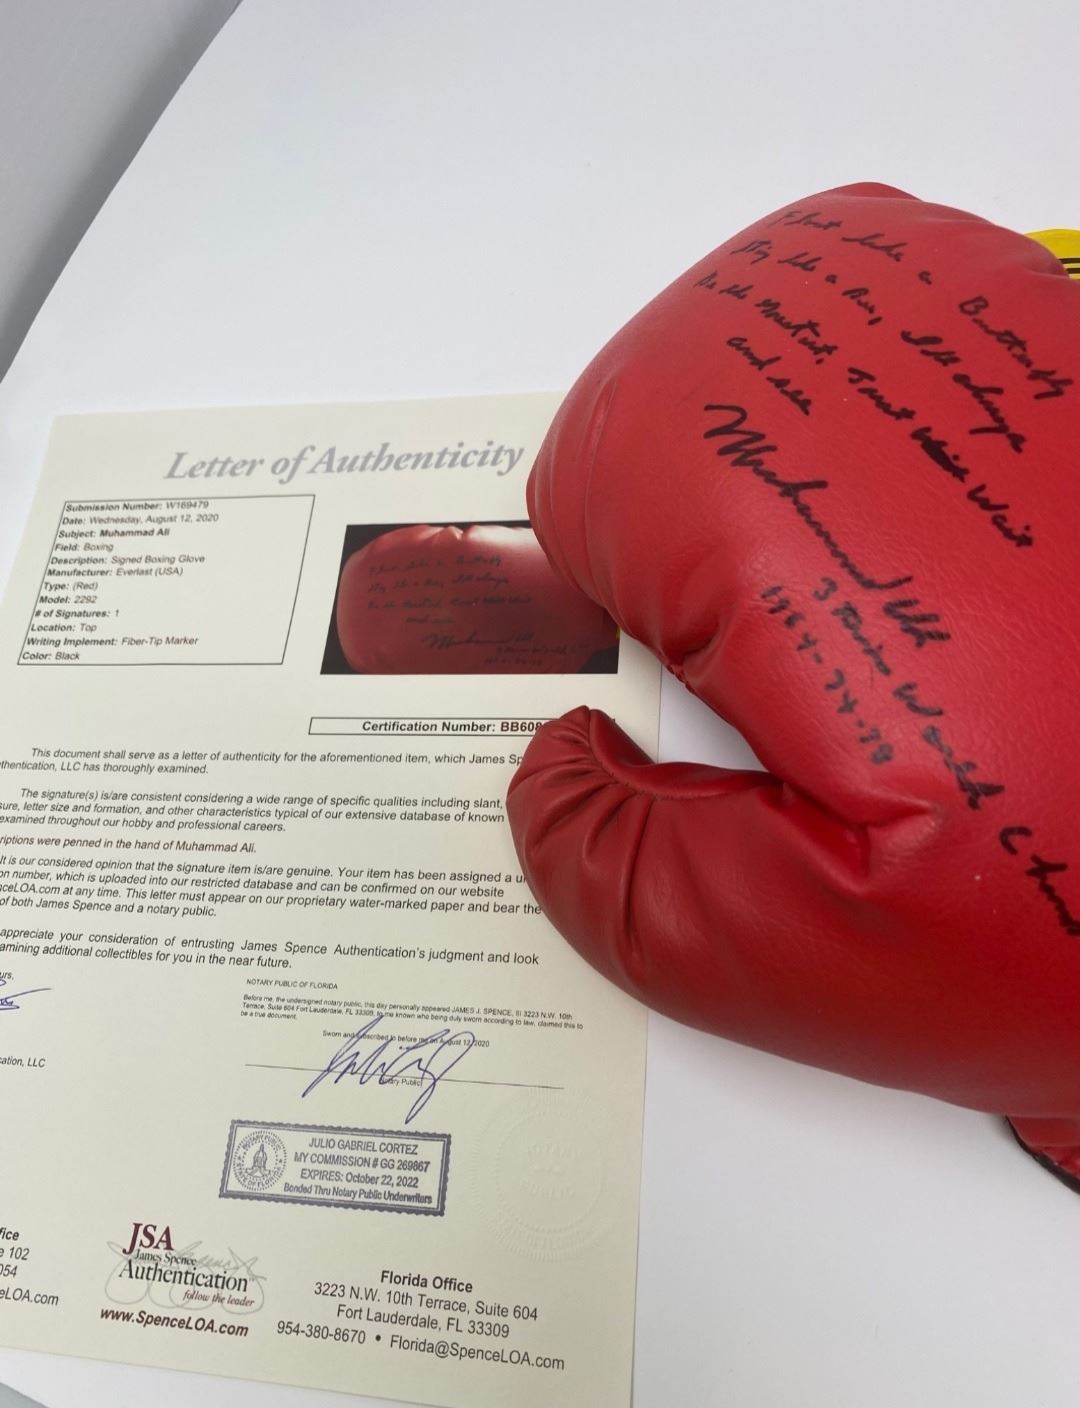 Letter of Authenticity
Submission Number: W169479
Date: Wednesday, August 12, 2020
Subject: Muhammad Ali
Field: Boxing
Description: Signed Boxing Glove
Manufacturer: Everlast (USA)
Type: (Red)
Model: 2292
# of Signatures: 1
Location: Top
Writing Implement: Fiber-Tip Marker
Color: Black
Certification Number: BB608
This document shall serve as a letter of authenticity for the aforementioned item, which James Sp
thentication, LLC has thoroughly examined.
The signature(s) is/are consistent considering a wide range of specific qualities including slant,
sure, letter size and formation, and other characteristics typical of our extensive database of known
examined throughout our hobby and professional careers.
riptions were penned in the hand of Muhammad Ali.
It is our considered opinion that the signature item is/are genuine. Your item has been assigned a u
on number, which is uploaded into our restricted database and can be confirmed on our website
nceLOA.com at any time. This letter must appear on our proprietary water-marked paper and bear the
of both James Spence and a notary public.
appreciate your consideration of entrusting James Spence Authentication's judgment and look
amining additional collectibles for you in the near future.
urs,
ation, LLC
NOTARY PUBLIC OF FLORIDA
Before me, the undersigned notary public, this day personally appeared JAMES J. SPENCE, III 3223 N.W. 10th
Terrace, Suite 604 Fort Lauderdale, FL 33309, to me known who being duly sworn according to law, claimed this to
be a true document.
Sworn and subscribed to before me on August 12, 2020
Notary Public
JULIO GABRIEL CORTEZ
MY COMMISSION # GG 269867
EXPIRES: October 22, 2022
Bonded Thru Notary Public Underwriters
fice
e 102
054
eLOA.com
JSA
James Spence
Authentication
follow the leader
www.SpenceLOA.com
Florida Office
3223 N.W. 10th Terrace, Suite 604
Fort Lauderdale, FL 33309
954-380-8670 • Florida@SpenceLOA.com
Float like a Butterfly
Stig like a Bee, I'll always
Be the Greatest, Just Wait
and see
Muhammad Ali
3 Times World Cham
1964-74-78